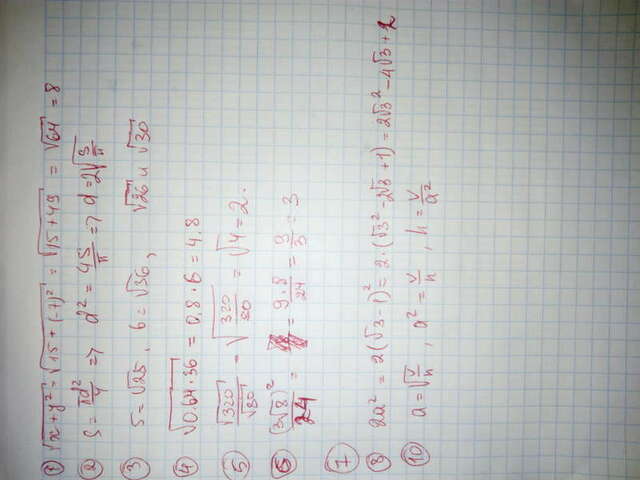 ① √x+y² = √15+(-7)² = √15+49 = √64 = 8
② S = πd²/4 => d² = 4S/π => d = 2√S/π
③ 5 = √25, 6 = √36, √26 и √30
④ √0,64·36 = 0,8·6 = 4,8
⑤ √320/√80 = √320/80 = √4 = 2.
⑥ (3√8)²/24 = = 9·8/24 = 9/3 = 3
⑦
⑧ 2a² = 2(√3-1)² = 2·(√3²-2√3+1) = 2√3²-4√3+2
⑩ a = √V/h, a² = V/h, h = V/a²